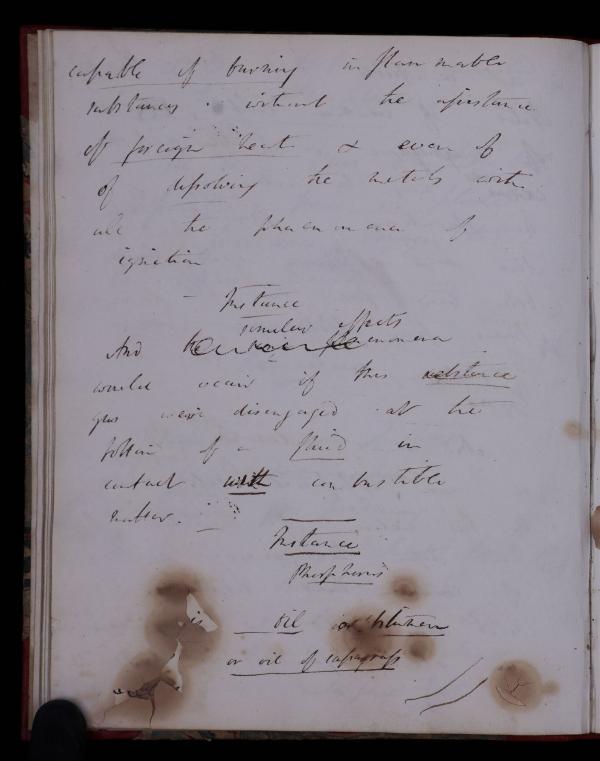 capable of burning inflammable
substances without the assistance
of foreign heat & even of
of dissolving the metals with
all the phaenomena of
ignition
Instance
similar effects
And the phenomena
would occur if this substance
gas were disengaged at the
bottom of a fluid in
contact with combustible
matter.
Instance
Phosphorus
in oil or
or oil of